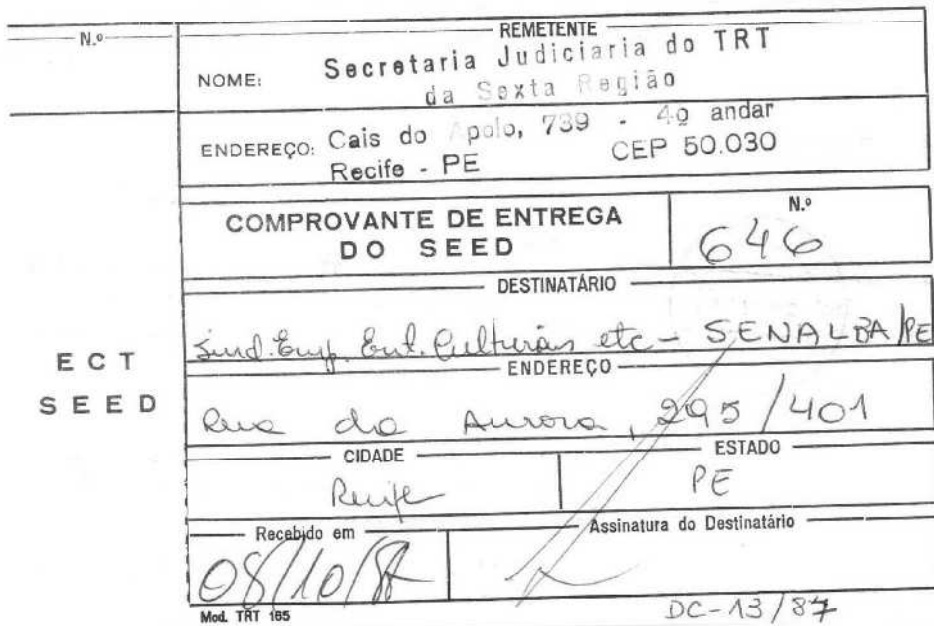 N.º
REMETENTE
NOME: Secretaria Judiciaria do TRT
da Sexta Região
ENDEREÇO: Cais do Apolo, 739 - 4º andar
Recife - PE CEP 50.030
COMPROVANTE DE ENTREGA
DO SEED
N.º
646
DESTINATÁRIO
Sind. Emp. Ent. Culturais etc - SENALBA/PE
ECT
SEED
ENDEREÇO
Rua da Aurora, 295/401
CIDADE
Recife
ESTADO
PE
Recebido em
08/10/87
Assinatura do Destinatário
Mod. TRT 165
DC-13/87